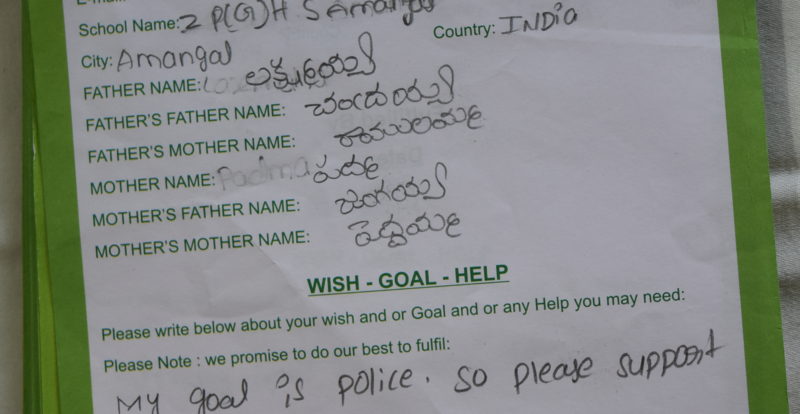 School Name: Z P(G)H.S Amangal
Country: INDiA
City: Amangal
FATHER NAME: లక్ష్మయ్య
FATHER'S FATHER NAME: చంద్రయ్య
FATHER'S MOTHER NAME: రాములమ్మ
MOTHER NAME: Padma పద్మ
MOTHER'S FATHER NAME: జంగయ్య
MOTHER'S MOTHER NAME: పెద్దమ్మ
WISH - GOAL - HELP
Please write below about your wish and or Goal and or any Help you may need:
Please Note : we promise to do our best to fulfil:
My goal is police. So please support